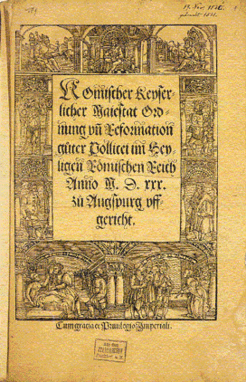 Römischer Keyser-
licher Maiestat Ord-
nung vñ Reformation
güter Pollicei im Hey-
ligen Römischen Reich
Anno M. D. xxx.
zů Augspurg vff-
gericht.
Cum gratia et Priuilegio Imperiali.